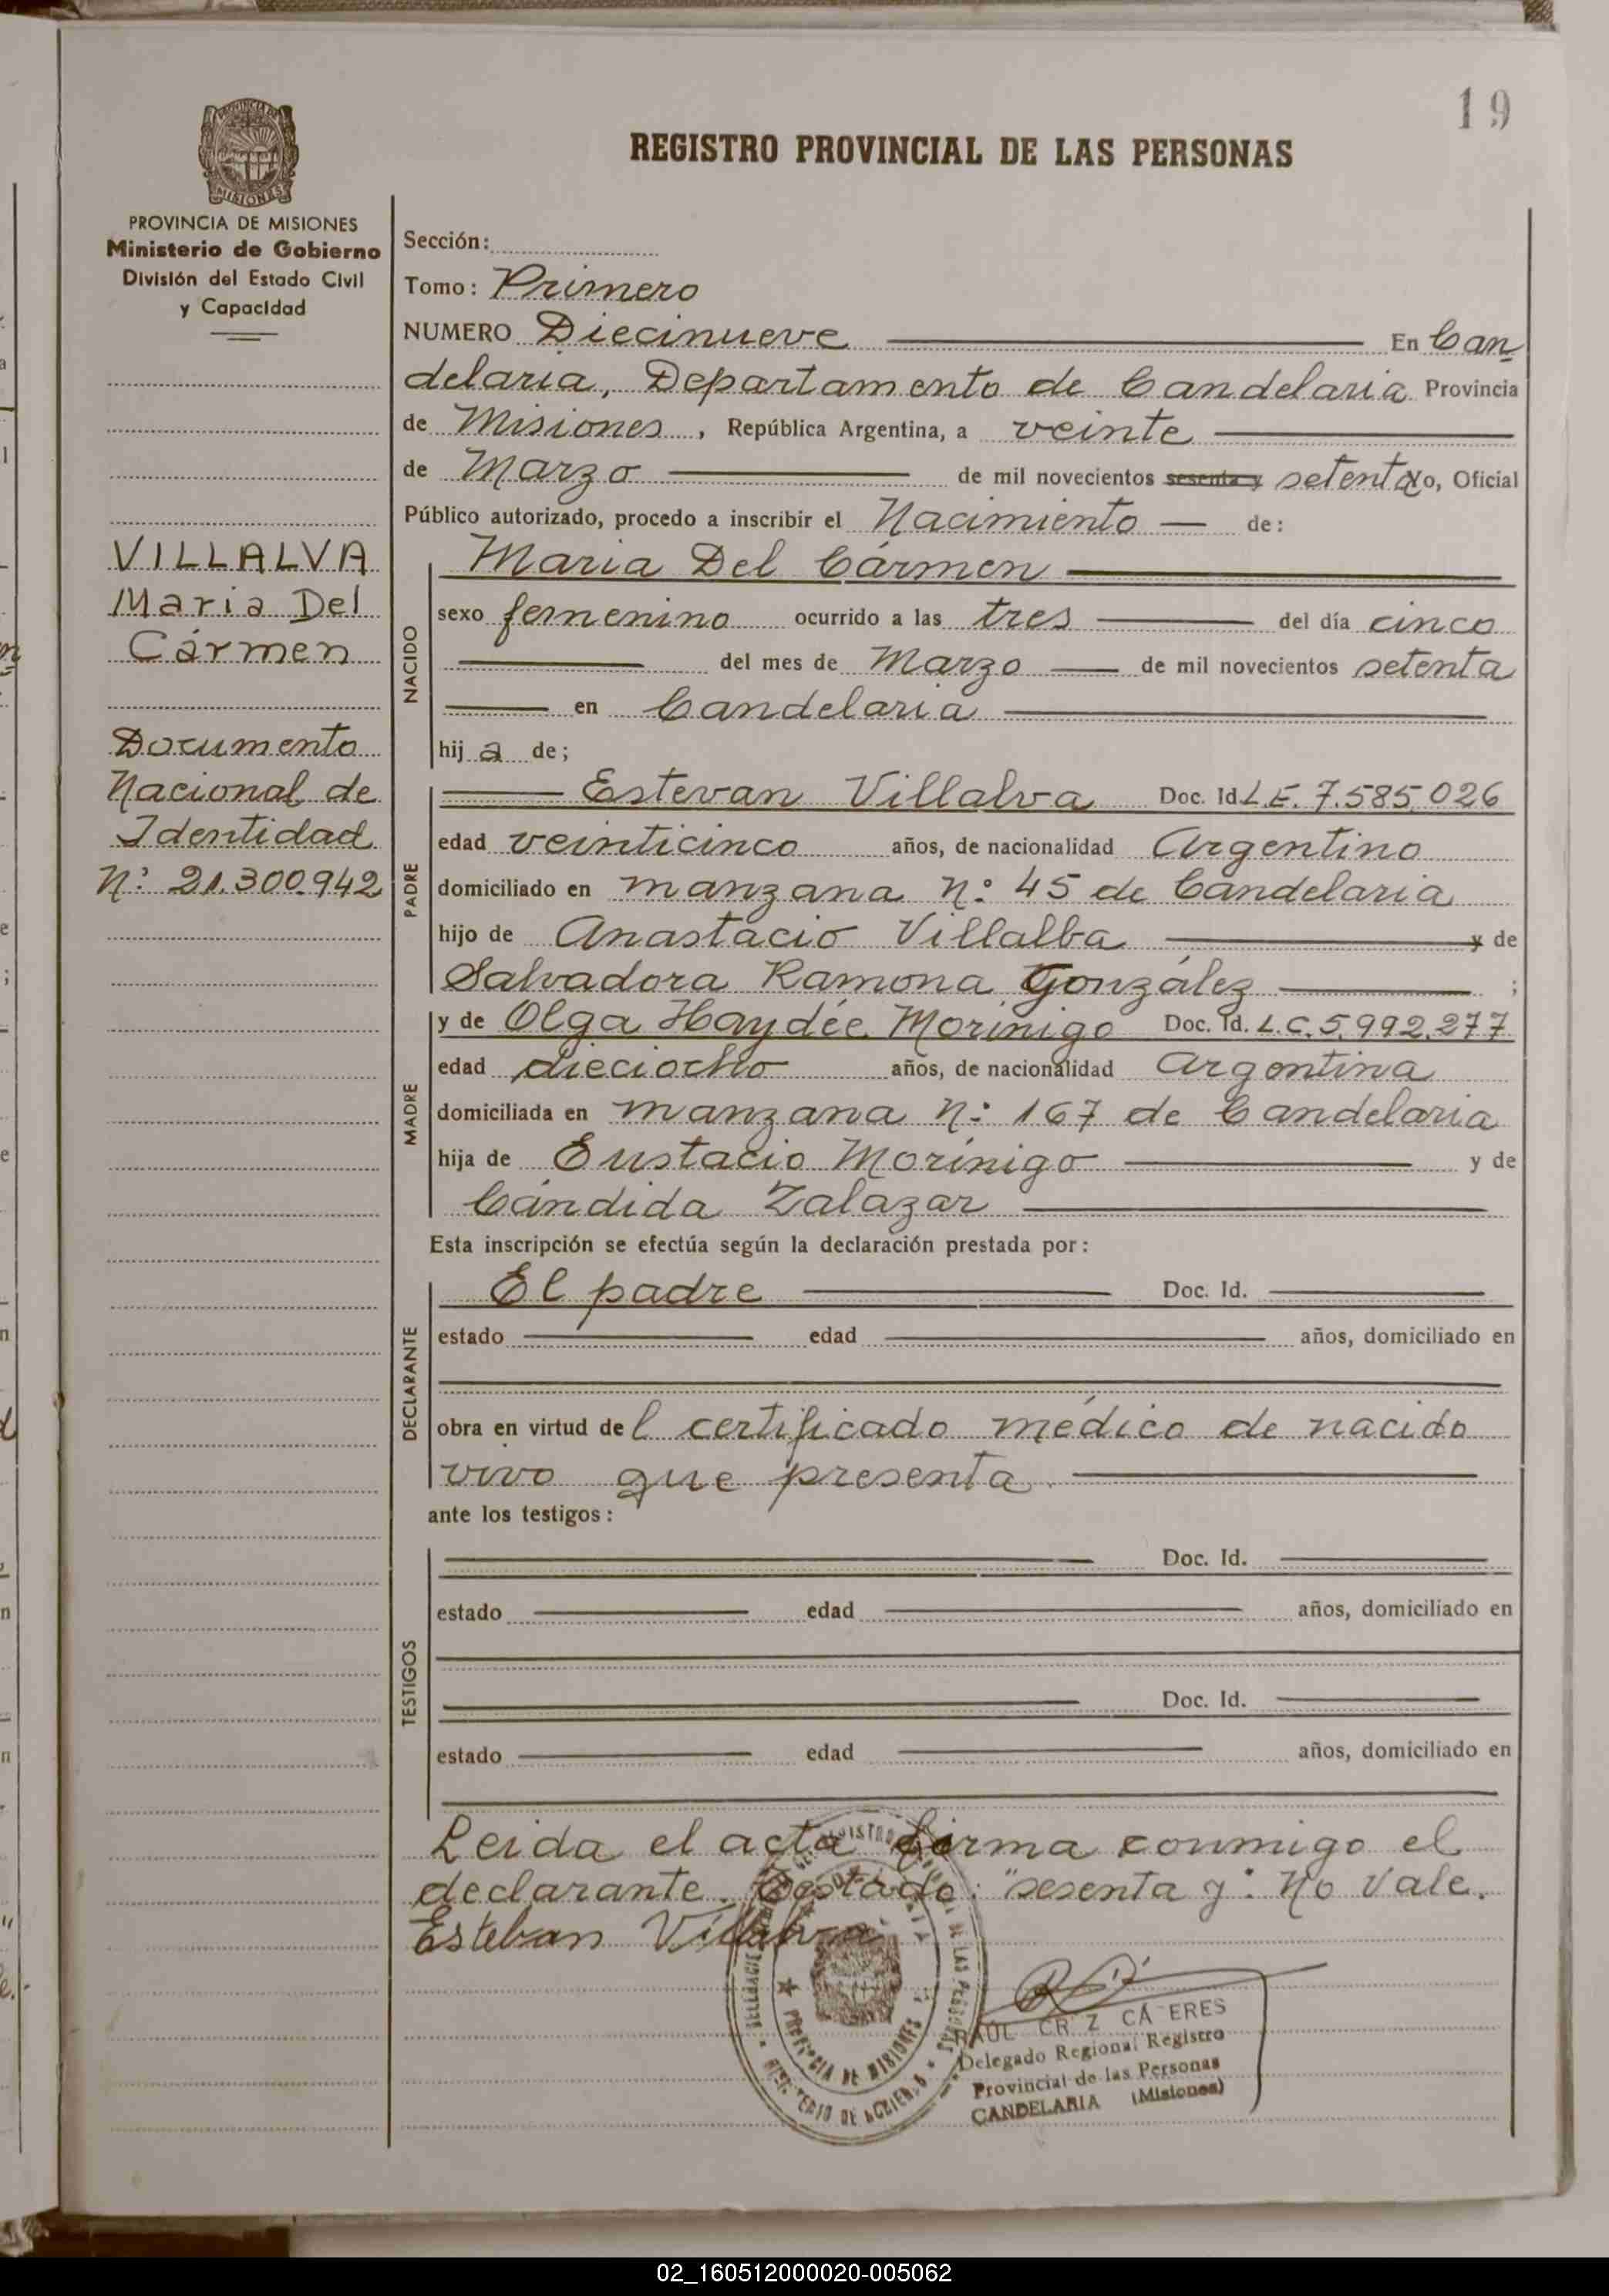 19
REGISTRO PROVINCIAL DE LAS PERSONAS
PROVINCIA DE MISIONES
Ministerio de Gobierno
División del Estado Civil
y Capacidad
VILLALVA
Maria Del
Cármen
Documento
Nacional de
Identidad
N: 21.300.942
Sección:
Tomo: Primero
NUMERO Diecinueve En Can
delaria, Departamento de Candelaria Provincia
de Misiones, República Argentina, a veinte
de Marzo de mil novecientos sesenta y setenta Yo, Oficial
Público autorizado, procedo a inscribir el Nacimiento de:
NACIDO
Maria Del Cármen
sexo femenino ocurrido a las tres del día cinco
del mes de Marzo de mil novecientos setenta
en Candelaria
hij a de;
PADRE
Estevan Villalva Doc. Id L.E. 7.585.026
edad veinticinco años, de nacionalidad Argentino
domiciliado en manzana n: 45 de Candelaria
hijo de Anastacio Villalba y de
Salvadora Ramona González ;
MADRE
y de Olga Haydée Morinigo Doc. Id. L.C. 5.992.277
edad dieciocho años, de nacionalidad Argentina
domiciliada en manzana n: 167 de Candelaria
hija de Eustacio Morínigo y de
Cándida Zalazar
Esta inscripción se efectúa según la declaración prestada por:
DECLARANTE
El padre Doc. Id.
estado edad años, domiciliado en
obra en virtud del certificado médico de nacido
vivo que presenta
ante los testigos:
TESTIGOS
Doc. Id.
estado edad años, domiciliado en
Doc. Id.
estado edad años, domiciliado en
Leida el acta firma conmigo el
declarante. Testado: "sesenta y": No Vale.
Esteban Villalva
PROVINCIA DE MISIONES
RAÚL CR Z CÁ ERES
Delegado Regional Registro
Provincial de las Personas
CANDELARIA (Misiones)
02_160512000020-005062